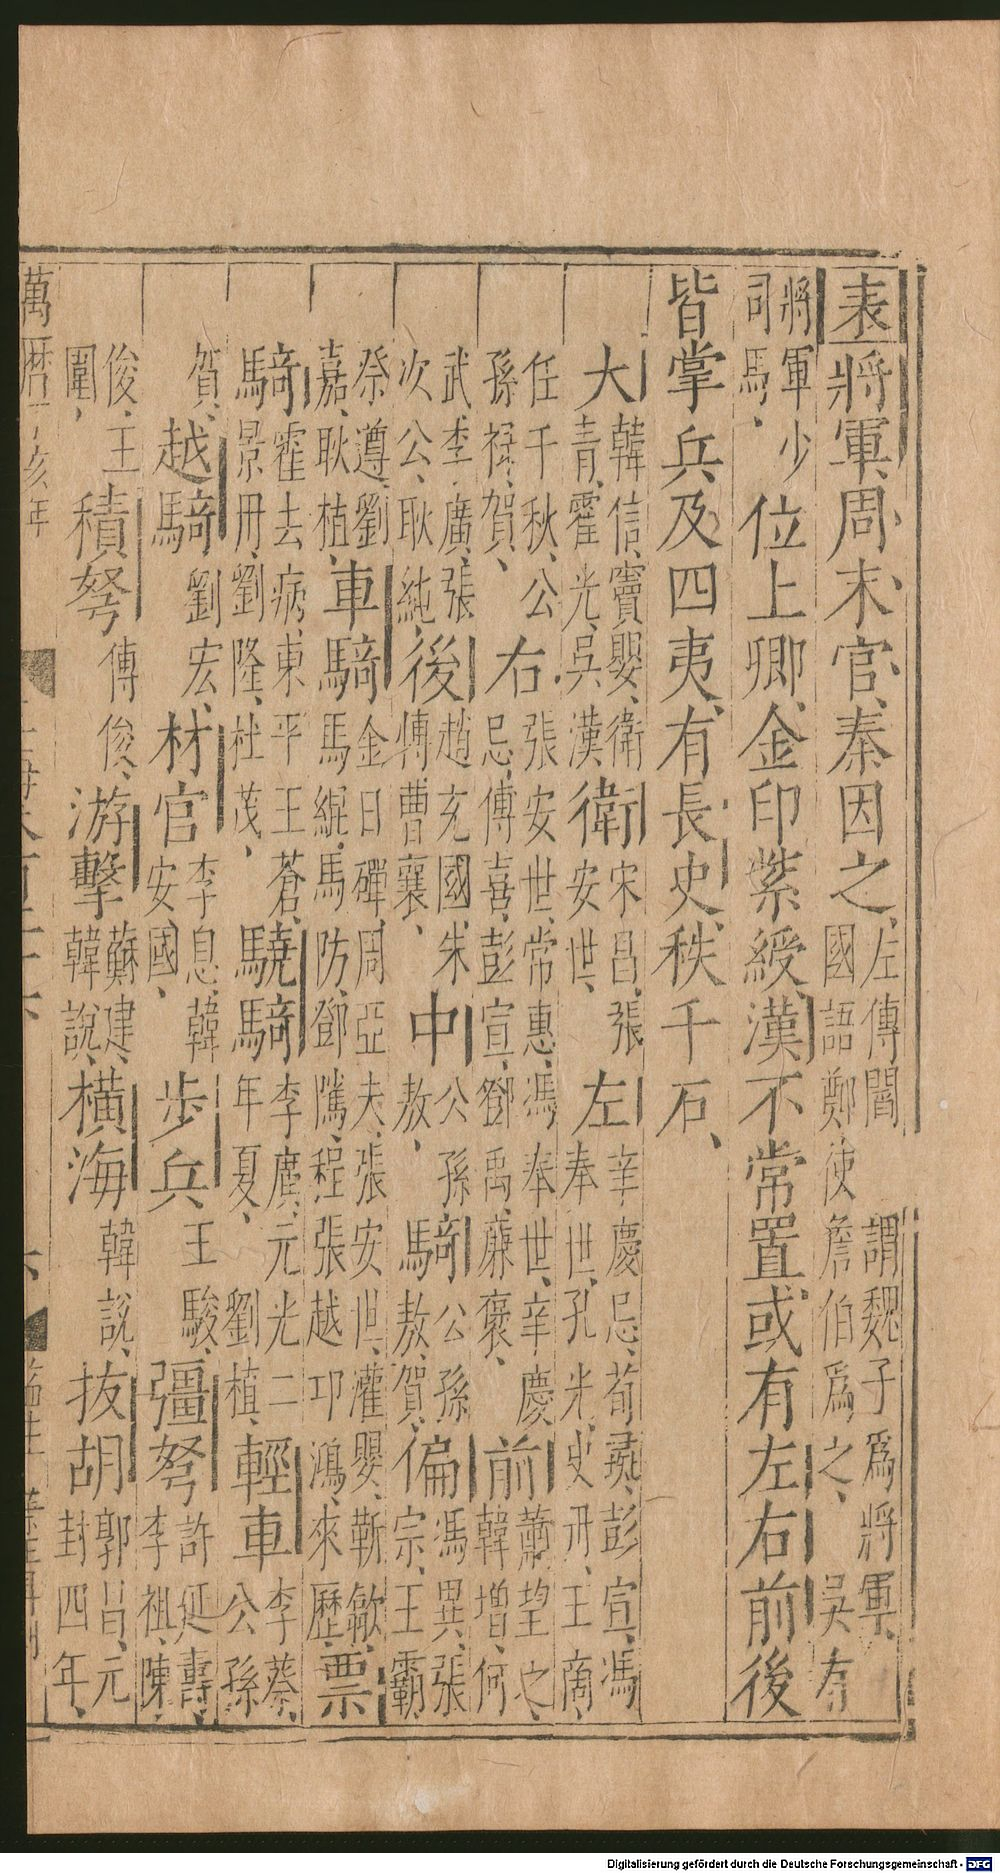 表將軍、周末官、秦因之、左傳閻謂魏子爲將軍、國語鄭使詹伯爲之、吳有
將軍少司馬、位上卿、金印紫綬、漢不常置、或有左右前後
皆掌兵及四夷、有長史、秩千石、
大韓信、竇嬰、衛青、霍光、吳漢衛宋昌、張安世、左辛慶忌、荀彘、彭宣、馮奉世、孔光、史丹、王商、
任千秋、公孫禄、賀、右張安世、常惠、馮奉世、辛慶忌、傅喜、彭宣、鄧禹、褒、前蕭望之、韓增、何
武、李廣、張次公、耿純、後趙充國、朱博、曹襄、中公孫敖、騎公孫敖、賀、偏馮異、張宗、王霸
祭遵、劉嘉、耿植、車騎金日磾、周亞夫、張安世、灌嬰、靳歙、馬緄、馬防、鄧隲、程張越卭鴻、來歷、票
騎霍去病、東平王蒼、景丹、劉隆、杜茂、驍騎李廣、元光二年夏、劉植、輕車李蔡、公孫
賀、越騎劉宏、材官李息、韓安國、步兵王駿、彊弩許延壽、李祖、陳
俊、王圍、積弩傅俊、游擊蘇建、韓說、橫海韓說、抜胡郭昌、元封四年、
萬曆丁亥年
六
Digitalisierung gefördert durch die Deutsche Forschungsgemeinschaft - DFG